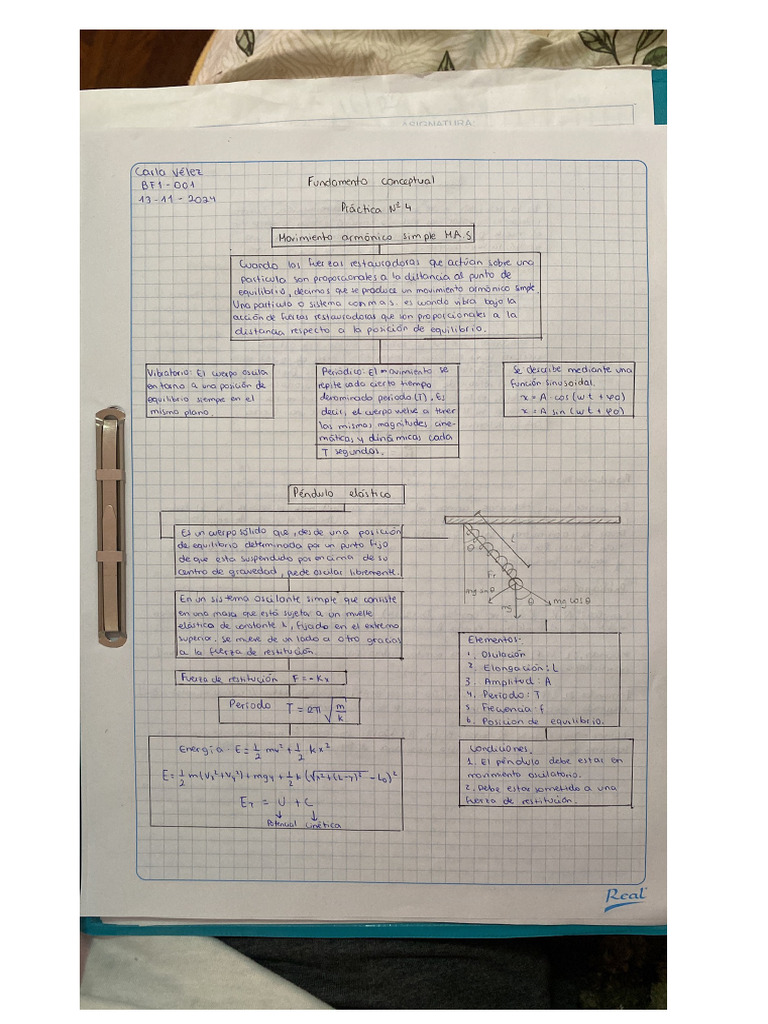 ASIGNATURA:
Carla Vélez
BF1-001
13-11-2024
Fundamento conceptual
Práctica Nº 4
Movimiento armónico simple M.A.S
Cuando las fuerzas restauradoras que actúan sobre una
partícula son proporcionales a la distancia al punto de
equilibrio, decimos que se produce un movimiento armónico simple.
Una partícula o sistema con m.a.s. es cuando vibra bajo la
acción de fuerzas restauradoras que son proporcionales a la
distancia respecto a la posición de equilibrio.
Vibratorio: El cuerpo oscila
en torno a una posición de
equilibrio siempre en el
mismo plano.
Periódico: El movimiento se
repite cada cierto tiempo
denominado periodo (T). Es
decir, el cuerpo vuelve a tener
las mismas magnitudes cine-
máticas y dinámicas cada
T segundos.
Se describe mediante una
función sinusoidal.
x = A · cos (wt + φ0)
x = A sin (wt + φ0)
Péndulo elástico
Es un cuerpo sólido que, desde una posición
de equilibrio determinada por un punto fijo
de que esta suspendido por encima de su
centro de gravedad, puede oscilar libremente.
En un sistema oscilante simple que consiste
en una masa que está sujeta a un muelle
elástico de constante k, fijado en el extremo
superior. Se mueve de un lado a otro gracias
a la fuerza de restitución.
Fuerza de restitución F = -Kx
Periodo T = 2π √m/k
Energía = E = 1/2 mv² + 1/2 kx²
E = 1/2 m(Vx² + Vy²) + mgy + 1/2 k (√x² + (L-y)² - L0)²
ET = U + C
Potencial cinética
θ
l
Fr
mg sin θ
θ
mg cos θ
mg
Elementos:
1. Oscilación
2. Elongación: L
3. Amplitud: A
4. Periodo: T
5. Frecuencia: f
6. Posición de equilibrio.
Condiciones.
1. El péndulo debe estar en
movimiento oscilatorio.
2. Debe estar sometido a una
fuerza de restitución.
Real